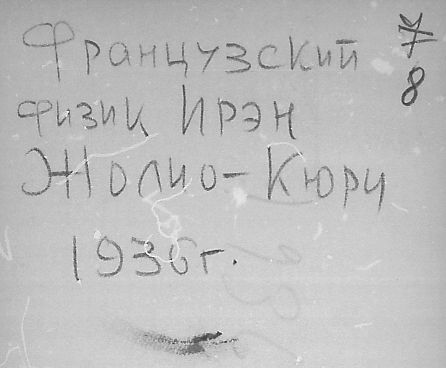 Французский 7
8
физик Ирэн
Жолио-Кюри
1936г.